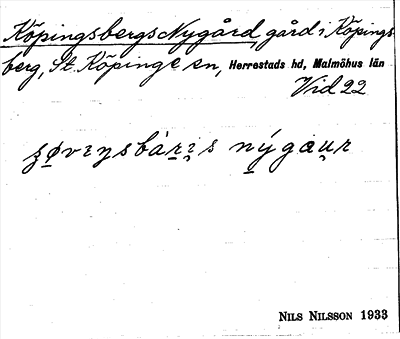 Köpingsbergs Nygård, gård i Köpings
berg, St. Köpinge sn, Herrestads hd, Malmöhus län
Vid 22
NILS NILSSON 1933